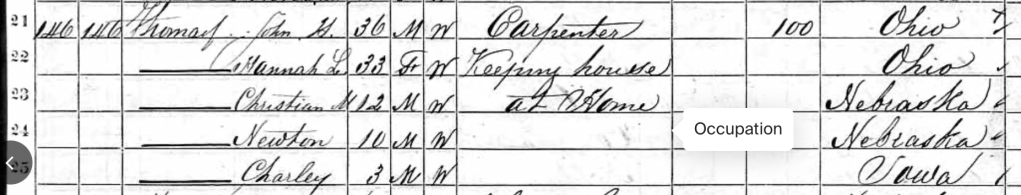 21 146 146 Thomas John H. 36 M W Carpenter 100 Ohio
22 Hannah L 33 F W Keeping house Ohio
23 Christian M 12 M W at Home Nebraska
24 Newton 10 M W Nebraska
Occupation
25 Charley 3 M W Iowa